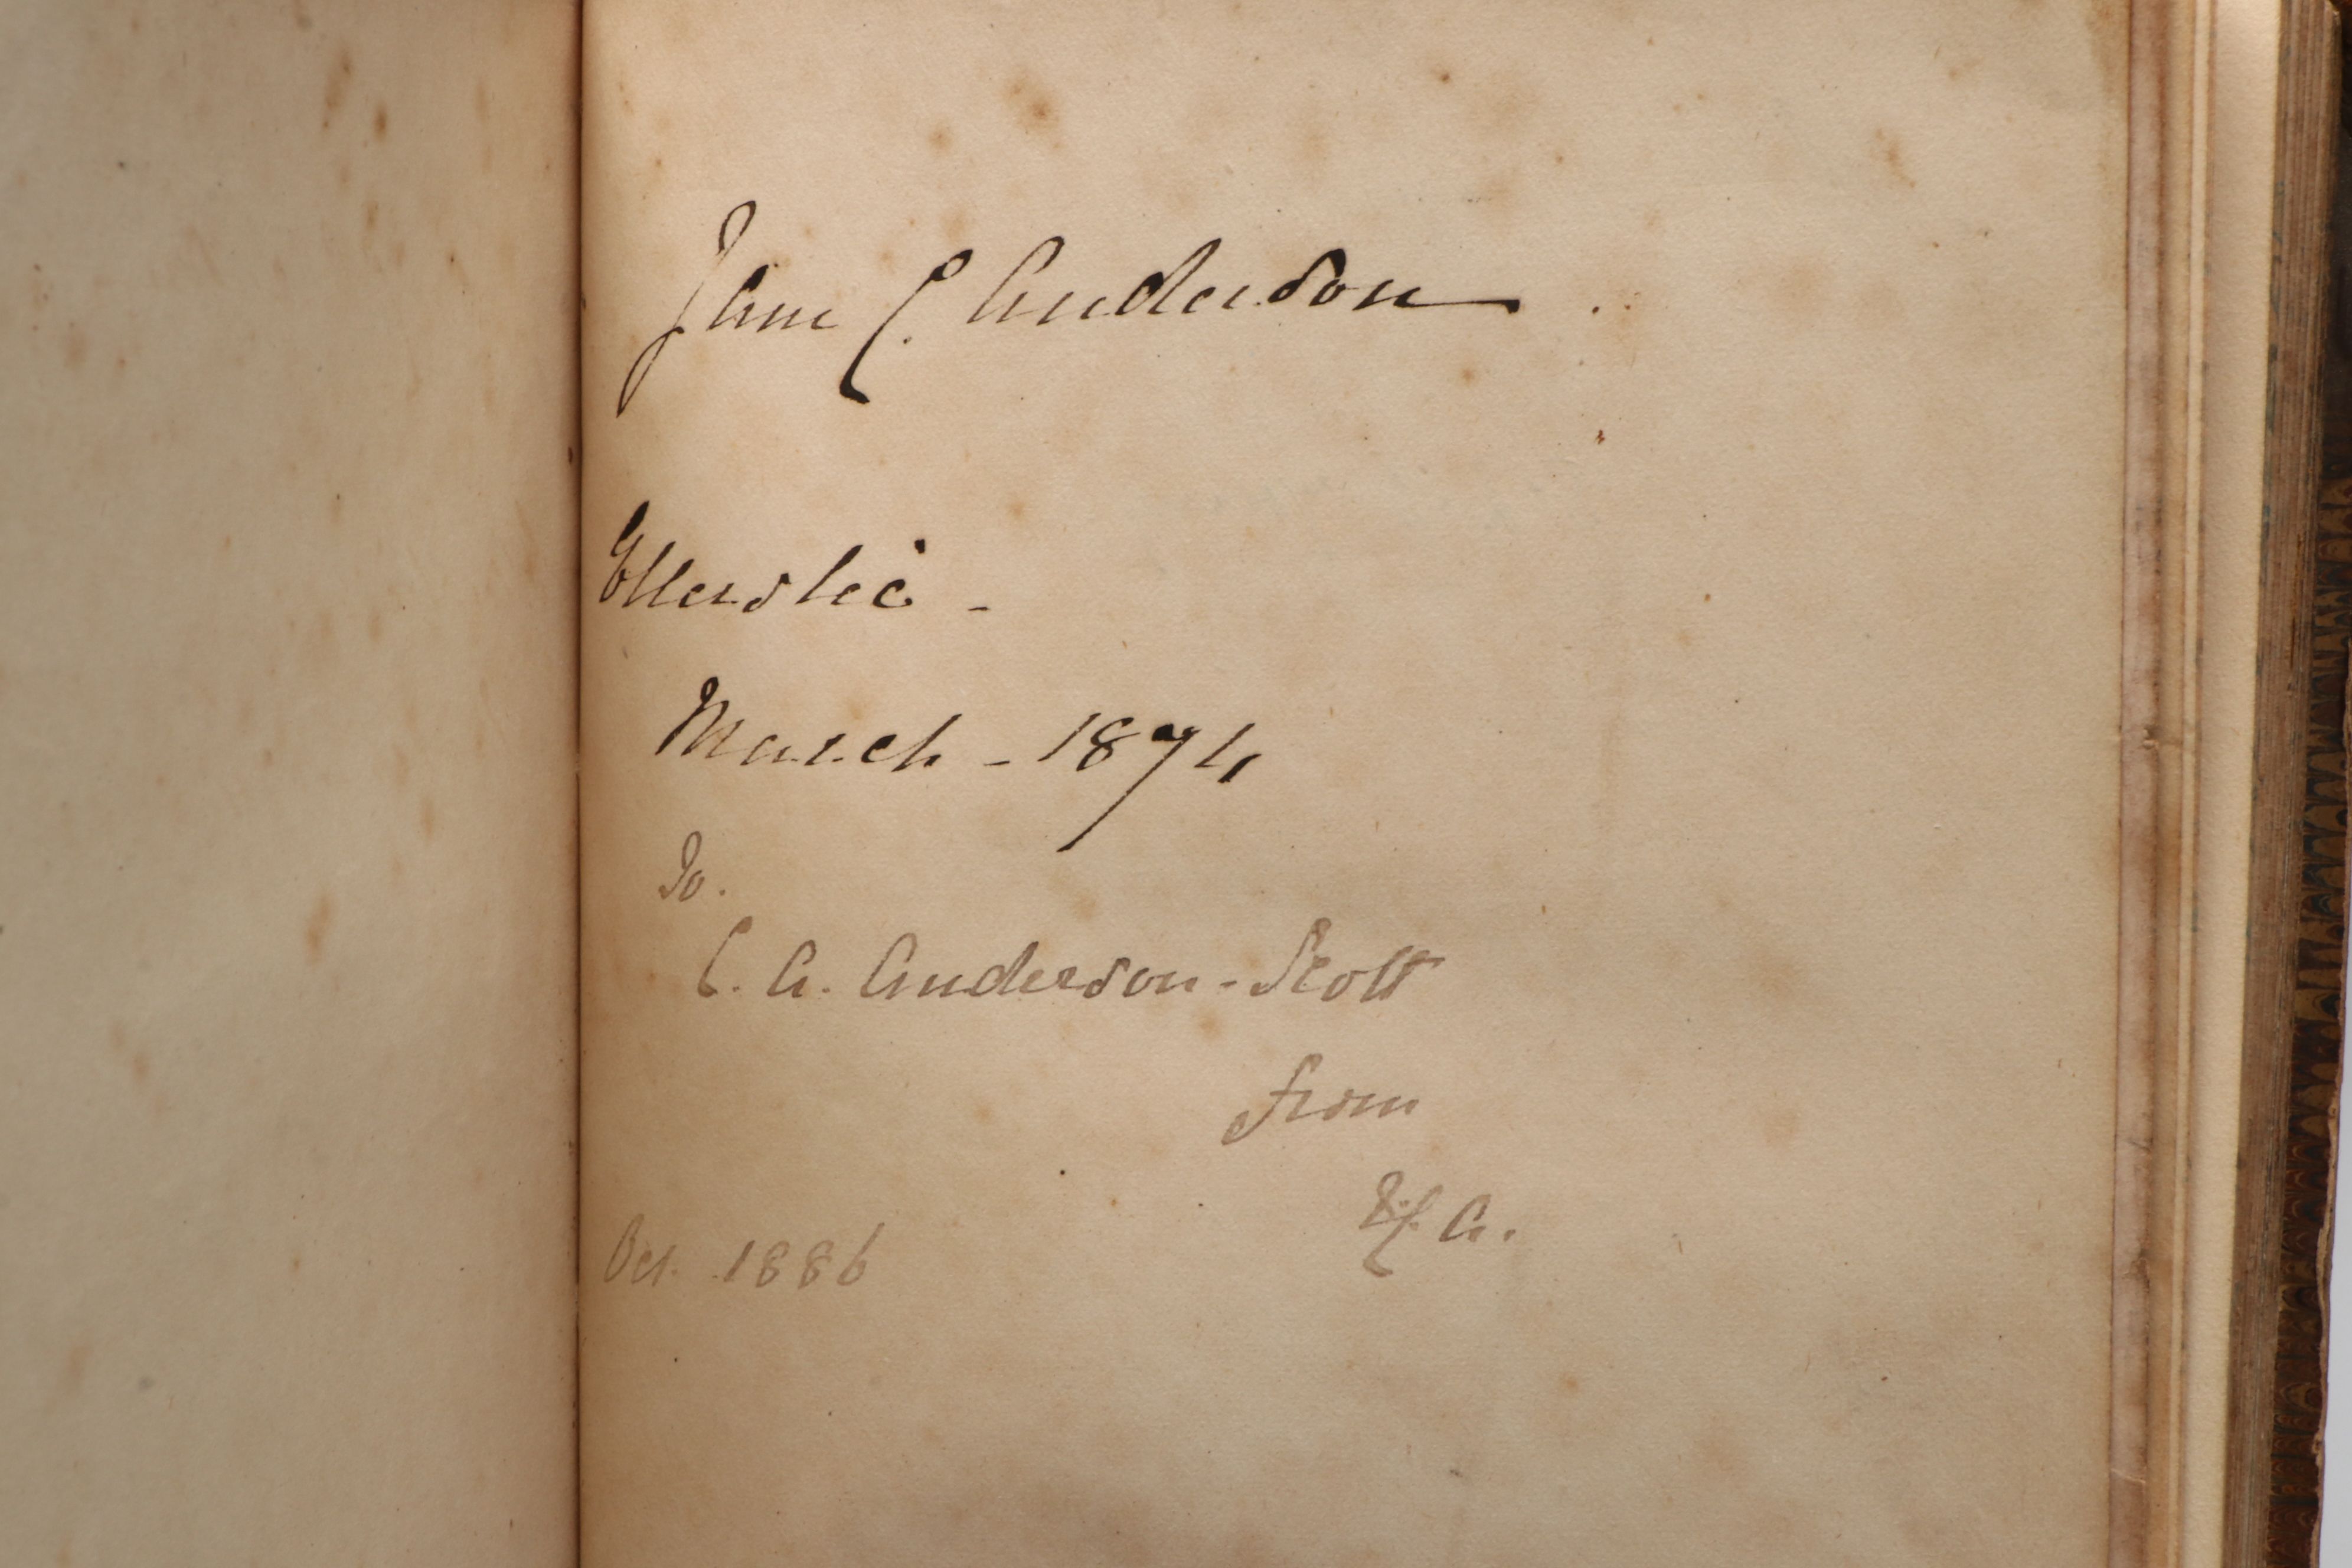 Jane C. Anderson
Ellerslie -
March - 1874
To.
C. A. Anderson-Scott
from
A.
Oct. 1886